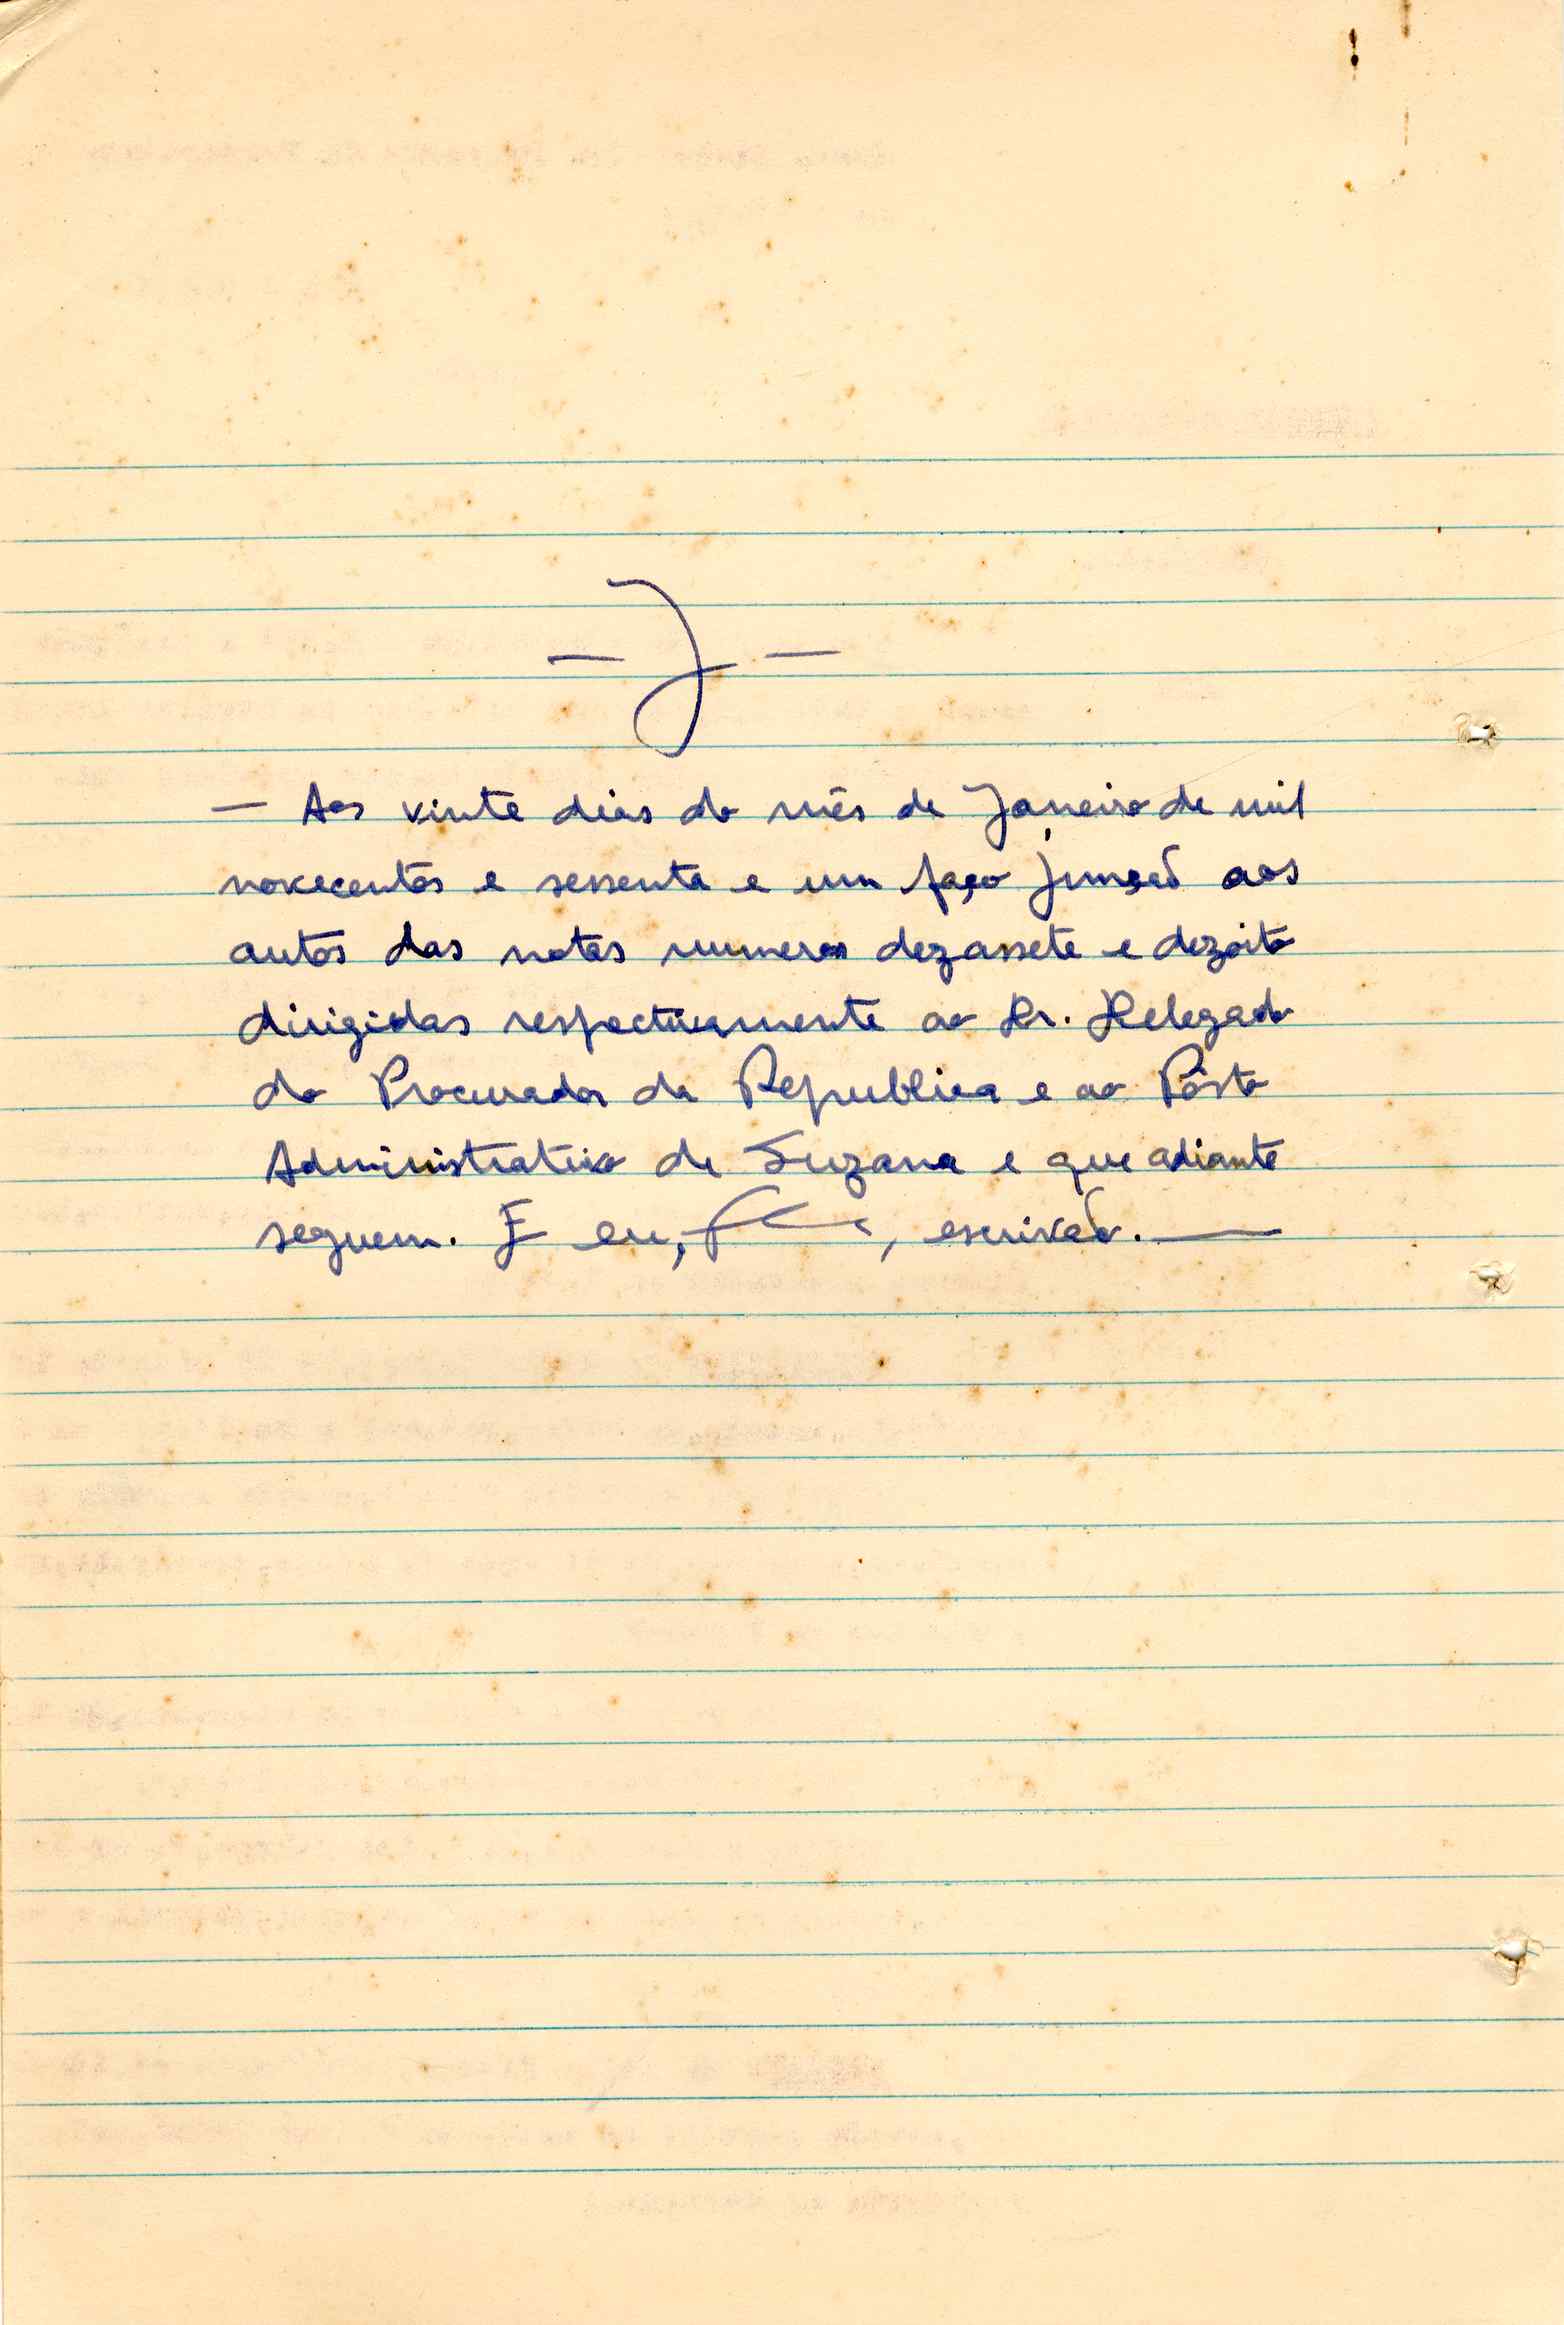 — J —
— Aos vinte dias do mês de Janeiro de mil
novecentos e sessenta e um faço junção aos
autos das notas numeros dezassete e dezoito
dirigidas respectivamente ao Dr. Delegado
do Procurador da Republica e ao Pôsto
Administrativo de Suzana e que adiante
seguem. E eu, , escrivão. —